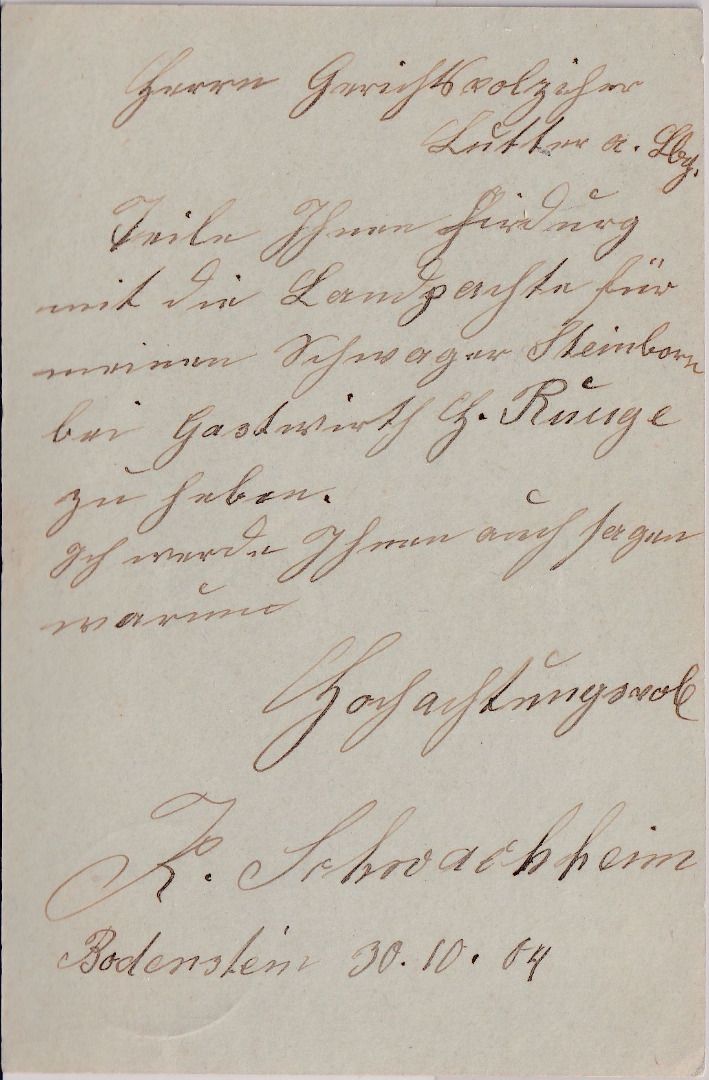 Herrn Gerichtsvolzieher
Lutter a. Bbg.
Teile Ihnen hirdurg
mit die Landpachte für
meinen Schwager Steinborn
bei Gastwirth H. Runge
zu heben.
Ich werde Ihnen auch sagen
warum
Hochachtungsvol
K. Schwachheim
Bodenstein 30. 10. 04